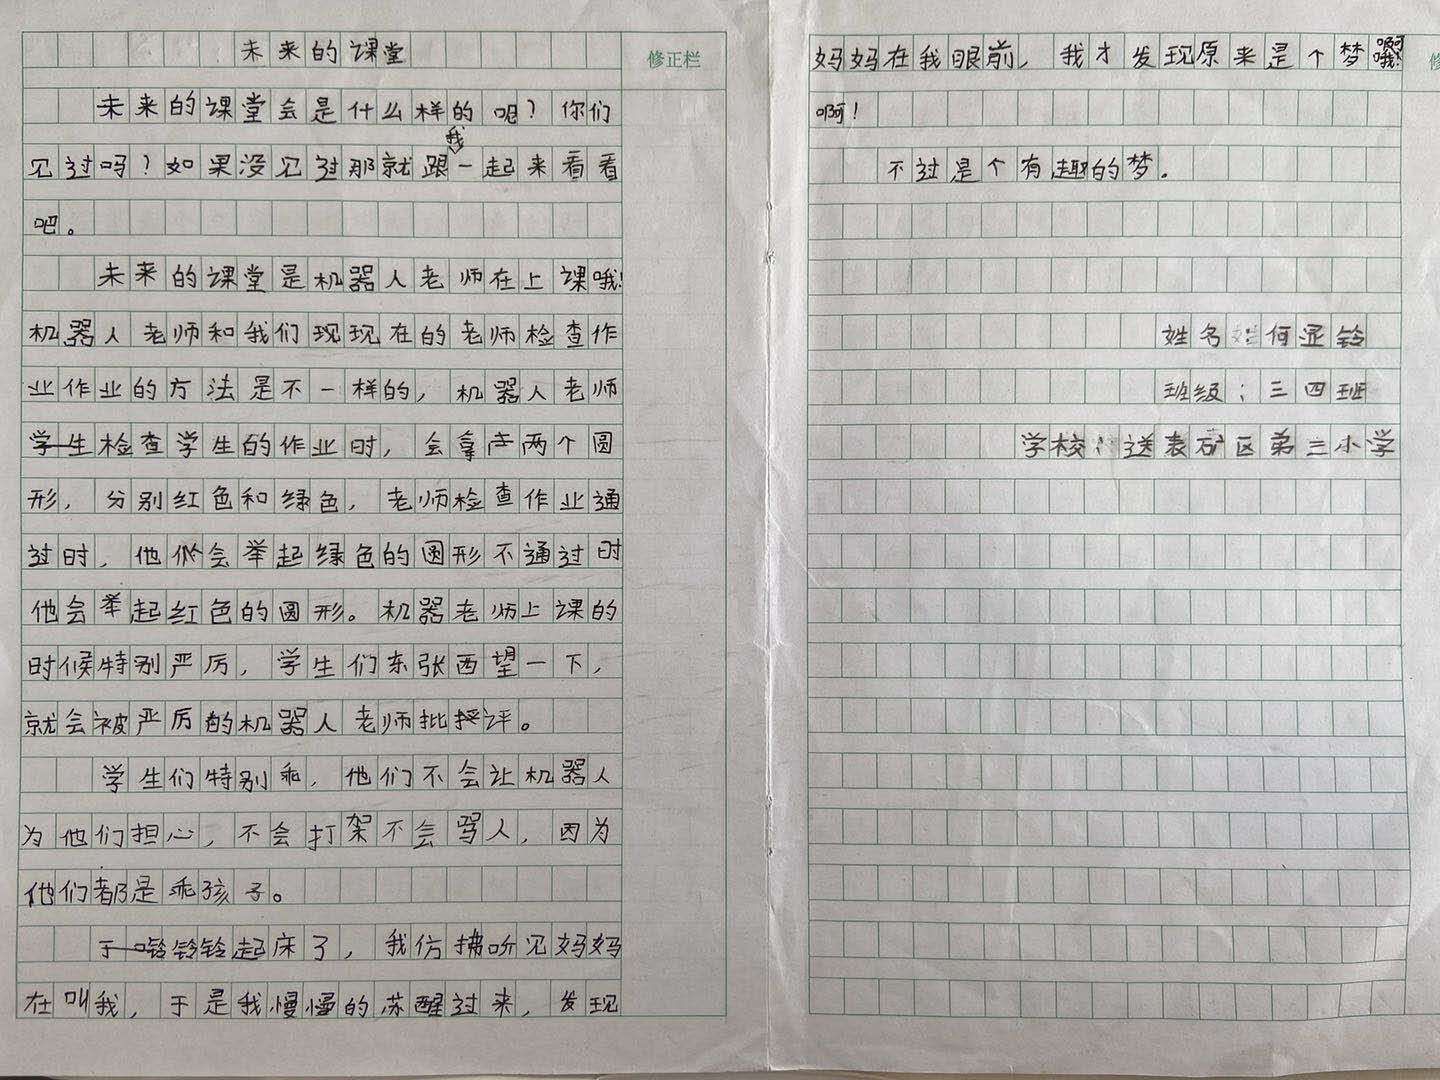 未来的课堂
修正栏
未来的课堂会是什么样的呢？你们
见过吗？如果没见过那就跟我一起来看看
吧。
未来的课堂是机器人老师在上课哦！
机器人老师和我们现现在的老师检查作
业作业的方法是不一样的，机器人老师
学生检查学生的作业时，会拿两个圆
形，分别红色和绿色，老师检查作业通
过时，他会举起绿色的圆形不通过时
他会举起红色的圆形。机器老师上课的
时候特别严厉，学生们东张西望一下，
就会被严厉的机器人老师批评。
学生们特别乖，他们不会让机器人
为他们担心，不会打架不会骂人，因为
他们都是乖孩子。
于铃铃铃起床了，我仿拂听见妈妈
在叫我，于是我慢慢的苏醒过来，发现
妈妈在我眼前，我才发现原来是个梦啊哦！
啊！
不过是个有趣的梦。
姓名姓何
班级：三四班
学校：送表矿区第三小学
修